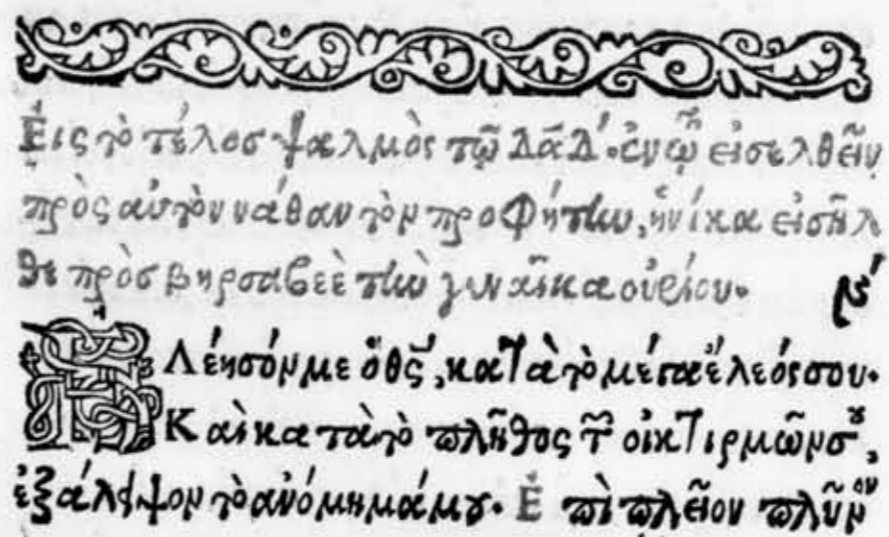 Εἰς τὸ τέλος ψαλμὸς τῷ Δᾱδ́. ἐν ᾧ εἰσελθεῖν
πρὸς αὐτὸν νάθαν τὸν προφήτην, ἡνίκα εἰσῆλ
θε πρὸς βηρσαβεὲ τὴν γυναῖκα οὐρίου.
Ἐλέησόν με ὁ θς̄, κατὰ τὸ μέγα ἔλεός σου.
Καὶ κατὰ τὸ πλῆθος τῶν οἰκτιρμῶν σου,
ἐξάλειψον τὸ ἀνόμημά μου. Ἐπὶ πλεῖον πλῦνόν